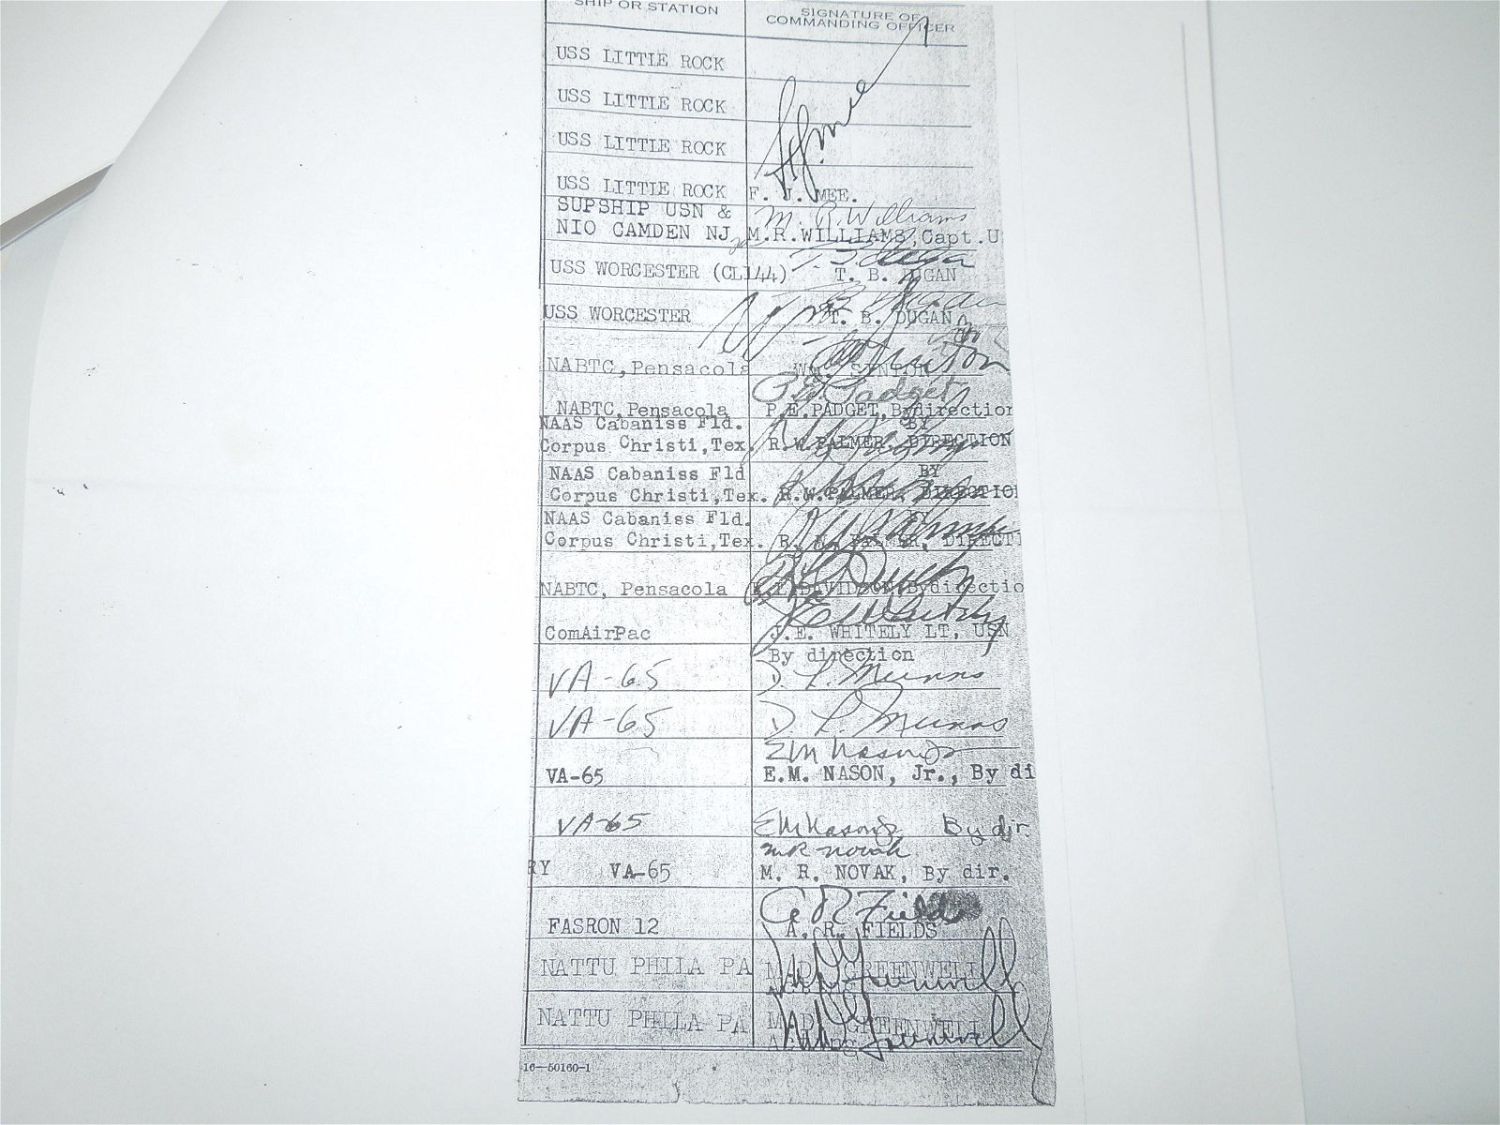 SHIP OR STATION SIGNATURE OF COMMANDING OFFICER
USS LITTLE ROCK
USS LITTLE ROCK
USS LITTLE ROCK
USS LITTLE ROCK F. J. MEE.
SUPSHIP USN & M. R. Williams
NIO CAMDEN NJ M.R.WILLIAMS,Capt.U
USS WORCESTER (CL144) T. B. DUGAN
USS WORCESTER T. B. DUGAN
NABTC,Pensacola
P E Padget
NABTC,Pensacola P.E.PADGET,Bydirection
NAAS Cabaniss Fld. BY
Corpus Christi,Tex. R.W.PALMER, DIRECTION
NAAS Cabaniss Fld BY
Corpus Christi,Tex. R.W.PALMER, DIRECTIO
NAAS Cabaniss Fld.
Corpus Christi,Tex. DIRECTI
NABTC, Pensacola DAVIDSON,Bydirectio
ComAirPac J.E. WHITELY LT, USN
By direction
VA-65 D. L. Munns
VA-65 D. L. Munns
EM Nason Jr
VA-65 E.M. NASON, Jr., By di
VA-65 EM Nason Jr By dir.
MR Novak
RY VA-65 M. R. NOVAK, By dir.
A R Fields
FASRON 12 A. R. FIELDS
NATTU PHILA PA GREENWELL
NATTU PHILA PA GREENWELL
16—50160-1